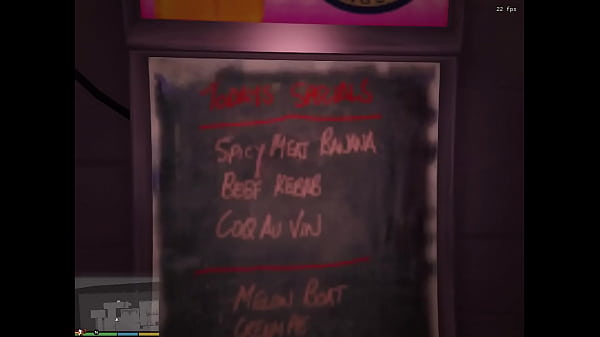 22 fps
TODAYS SPECIALS
SPICY MEAT BANANA
BEEF KEBAB
COQ AU VIN
MELON BOAT